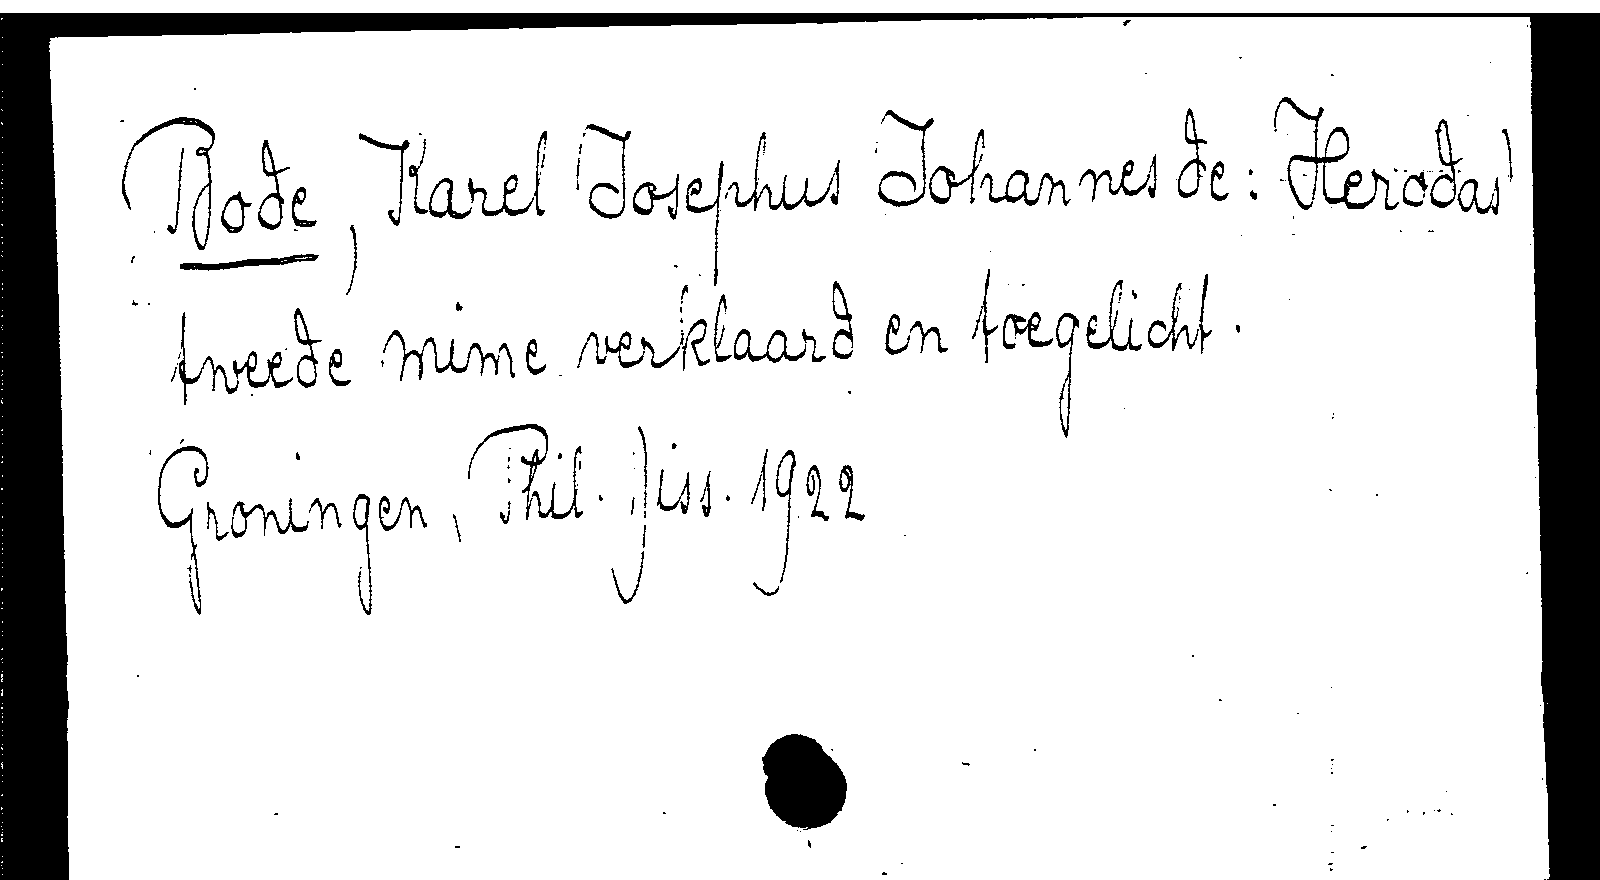 Bode, Karel Josephus Johannes de: Herodas'
tweede mime verklaard en toegelicht.
Groningen, Phil. Diss. 1922